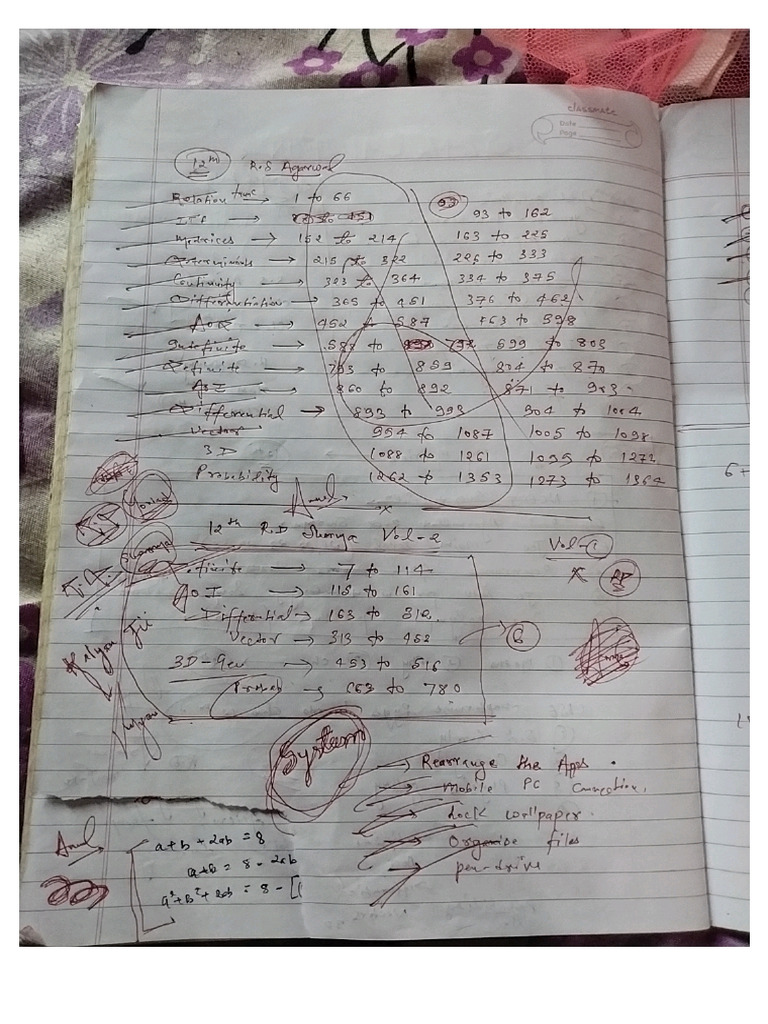 classmate
Date
Page
12th R.S Agarwal
Relation func 1 to 66
ITF → 93 to 162
Matrices → 152 to 214 163 to 225
Determinants → 215 to 322 226 to 333
Continuity → 323 to 364 334 to 375
Differentiation → 365 to 451 376 to 462
→ 452 to 587 463 to 598
Indefinite → 588 to 792 599 to 803
Definite → 793 to 859 804 to 870
AOI → 860 to 892 871 to 903
Differential → 893 to 993 904 to 1004
Vector 994 to 1087 1005 to 1098
3D 1088 to 1261 1099 to 1272
Probability 1262 to 1353 1273 to 1364
12th R.D Sharma Vol-2
Vol-1
finite → 7 to 114
AOI → 115 to 161
Differential → 163 to 312
Vector → 313 to 452
6
3D-Geo → 453 to 516
Probab → 663 to 780
System
→ Rearrange the Apps.
→ Mobile PC Connection.
→ Lock wallpaper.
→ Organise files
→ pen-drive
a+b+2ab = 8
a+b = 8-2ab
a²+b²+2ab = 8-[
6+